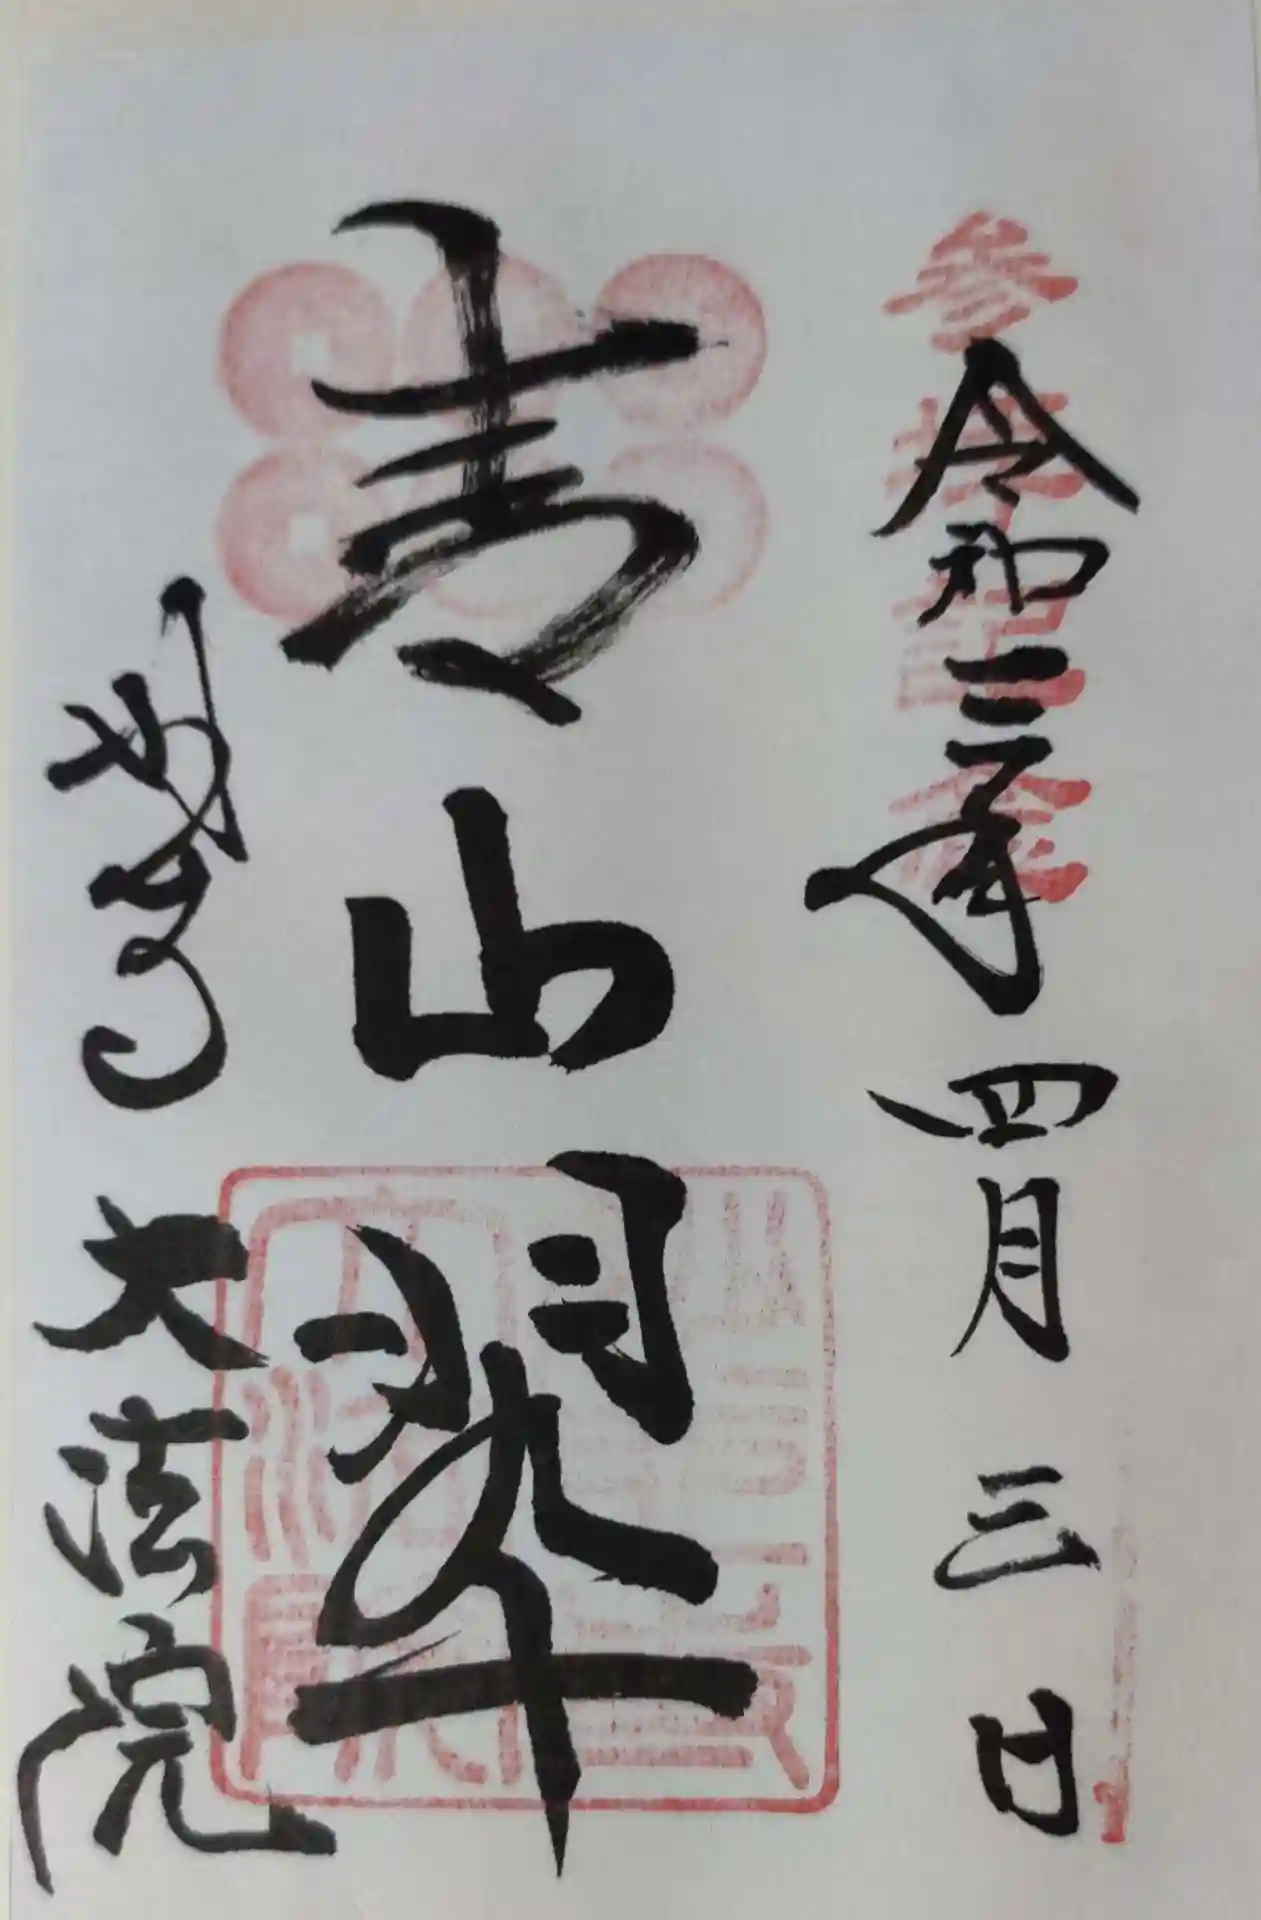 参拝記念
令和三年四月三日
青山翠
妙心寺 大法院